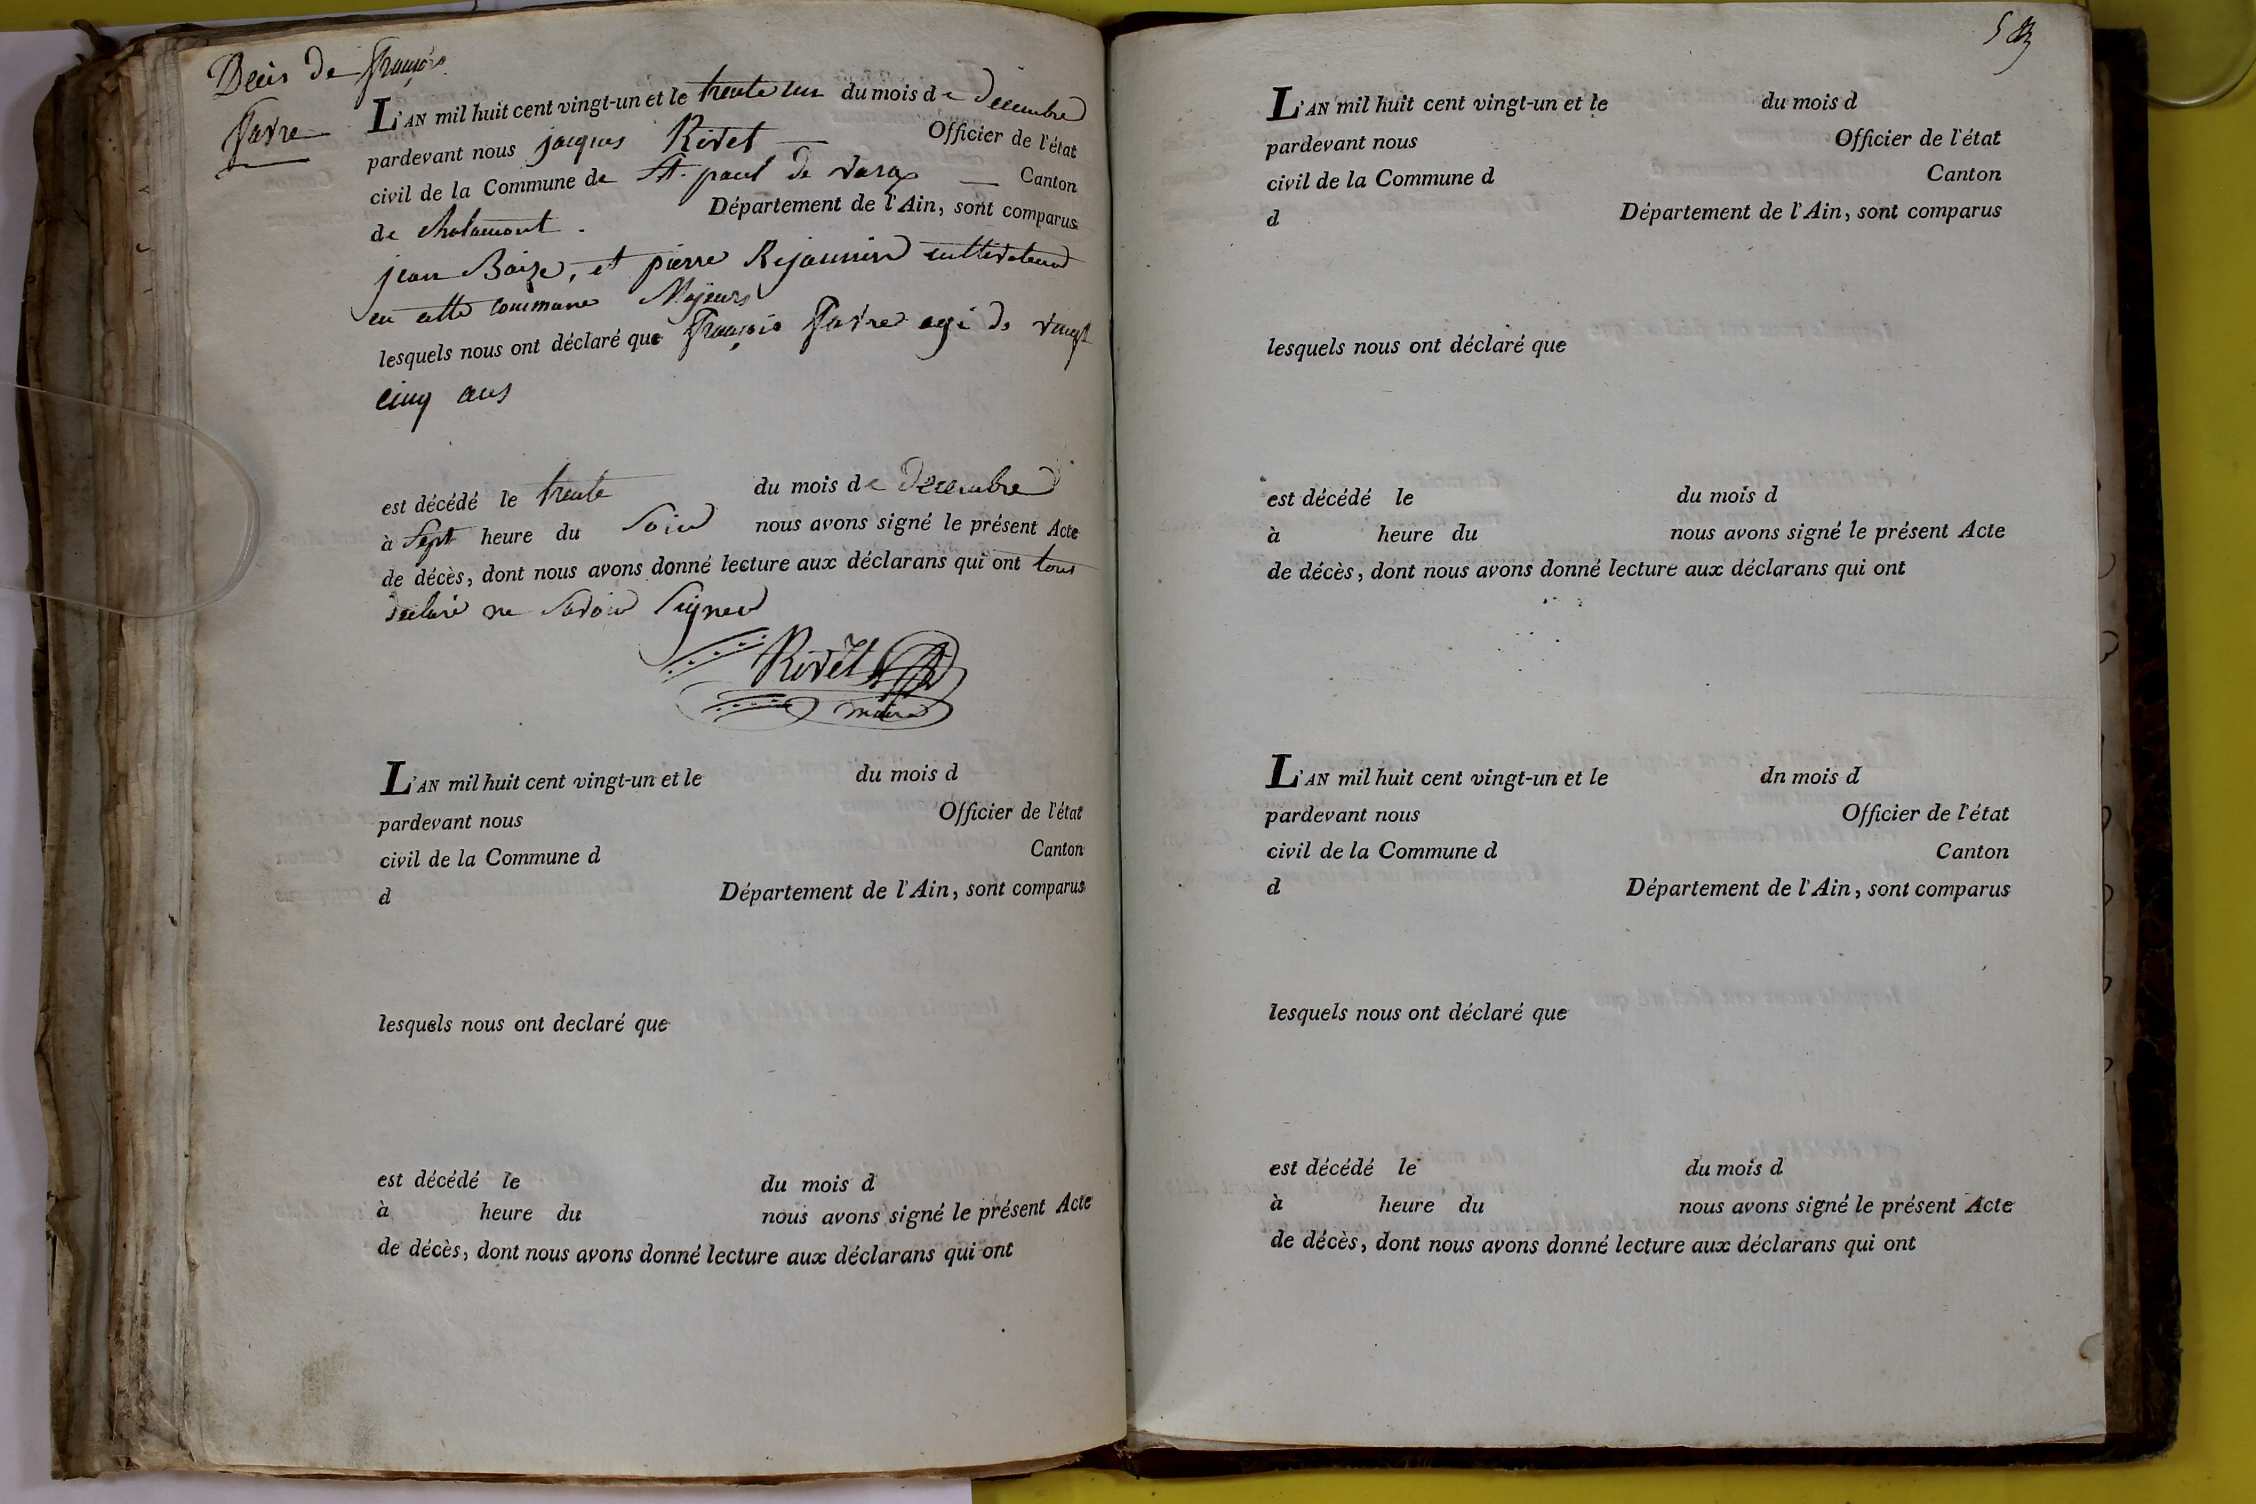 Décès de françois
favre
L'AN mil huit cent vingt-un et le trente un du mois de décembre
pardevant nous jacques Rivet Officier de l'état
civil de la Commune de St. paul de varax Canton
de chalamont. Département de l'Ain, sont comparus
jean Baize, et pierre Rejaunin cultivateurs
en cette commune Majeurs
lesquels nous ont déclaré que françois favre agé de vingt
cinq ans
est décédé le trente du mois de décembre
à sept heure du soir nous avons signé le présent Acte
de décès, dont nous avons donné lecture aux déclarans qui ont tous
déclaré ne savoir signer
Rivet
maire
L'AN mil huit cent vingt-un et le du mois d
pardevant nous Officier de l'état
civil de la Commune d Canton
d Département de l'Ain, sont comparus
lesquels nous ont declaré que
est décédé le du mois d
à heure du nous avons signé le présent Acte
de décès, dont nous avons donné lecture aux déclarans qui ont
L'AN mil huit cent vingt-un et le du mois d
pardevant nous Officier de l'état
civil de la Commune d Canton
d Département de l'Ain, sont comparus
lesquels nous ont déclaré que
est décédé le du mois d
à heure du nous avons signé le présent Acte
de décès, dont nous avons donné lecture aux déclarans qui ont
L'AN mil huit cent vingt-un et le dn mois d
pardevant nous Officier de l'état
civil de la Commune d Canton
d Département de l'Ain, sont comparus
lesquels nous ont déclaré que
est décédé le du mois d
à heure du nous avons signé le présent Acte
de décès, dont nous avons donné lecture aux déclarans qui ont